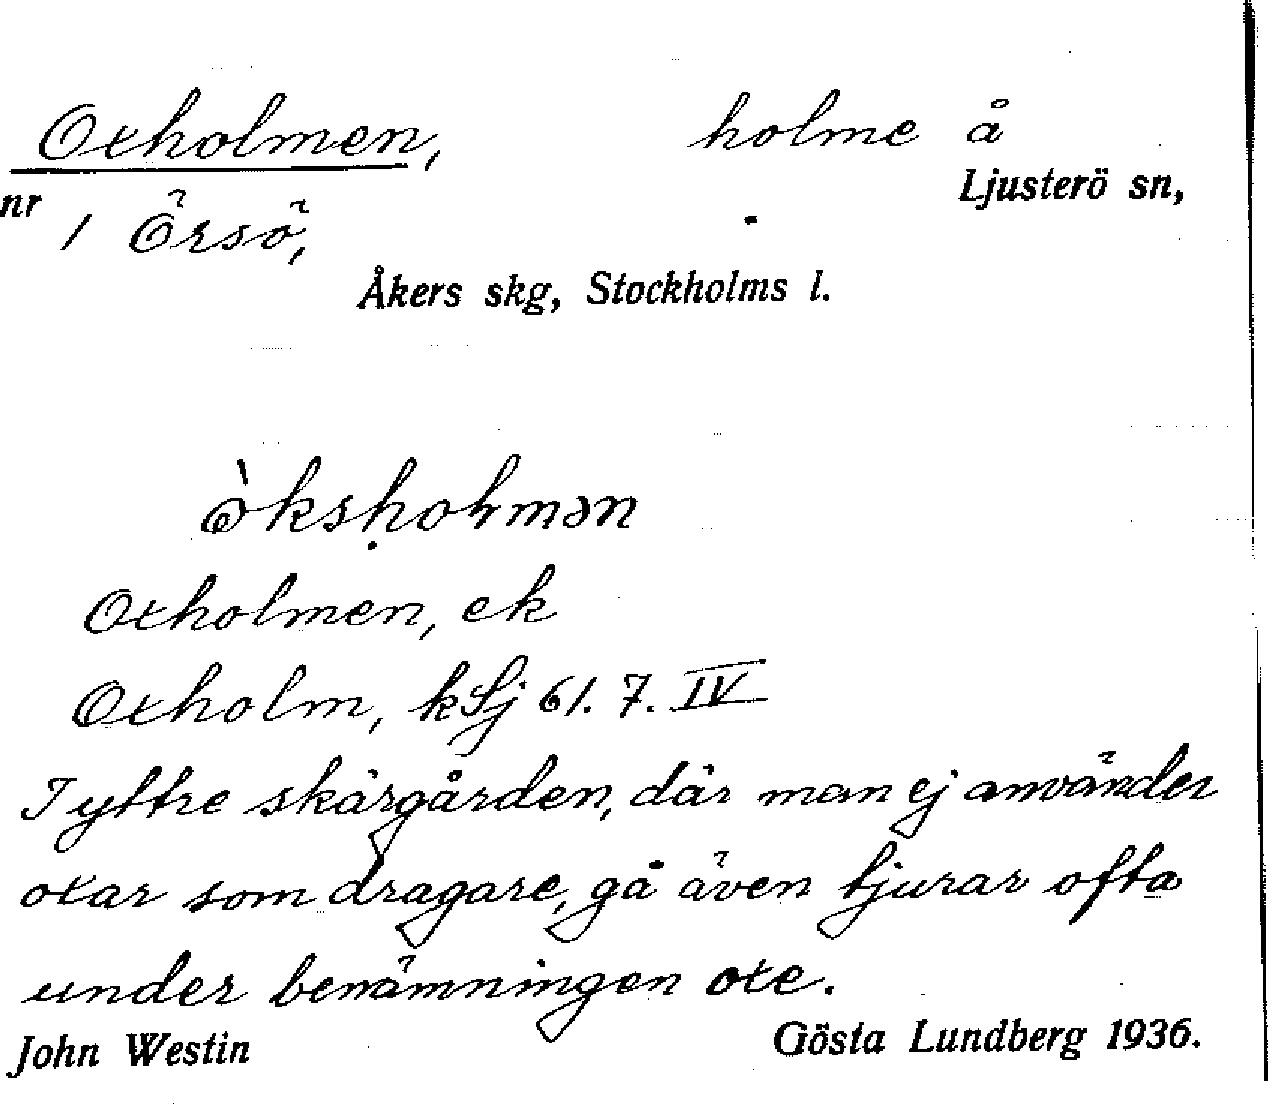 Oxholmen, holme å
Ljusterö sn,
nr 1 Örsö,
Åkers skg, Stockholms l.
Oxholmen, ek
Oxholm, kSj 61. 7. IV
I yttre skärgården, där man ej använder
oxar som dragare, gå även tjurar ofta
under benämningen oxe.
John Westin Gösta Lundberg 1936.